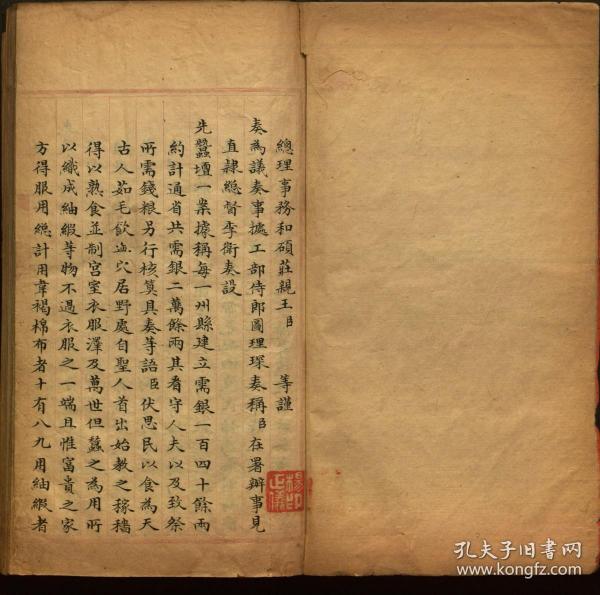 總理事務和碩莊親王臣 等謹
奏為議奏事據工部侍郎圖理琛奏稱臣在署辦事見
直隸總督李衛奏設
先蠶壇一案據稱每一州縣建立需銀一百四十餘兩
約計通省共需銀二萬餘兩其看守人夫以及致祭
所需錢粮另行核算具奏等語臣伏思民以食為天
古人茹毛飲血穴居野處自聖人首出始教之稼穡
得以熟食並制宮室衣服澤及萬世但蠶之為用所
以織成紬緞等物不過衣服之一端且惟富貴之家
方得服用總計用韋褐棉布者十有八九用紬緞者
孔夫子旧书网
www.kongfz.com